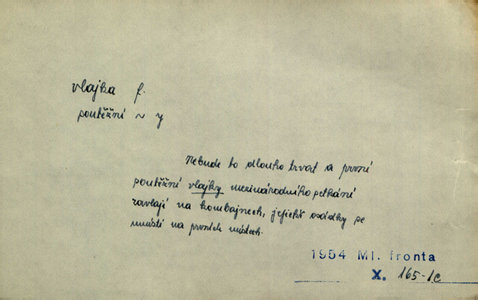 vlajka f.
soutěžní ~ y
Nebude to dlouho trvat a první
soutěžní vlajky mezinárodního setkání
zavlají na kombajnech, jejichž osádky se
umístí na prvních místech.
1954 Ml. fronta
X. 165-1c